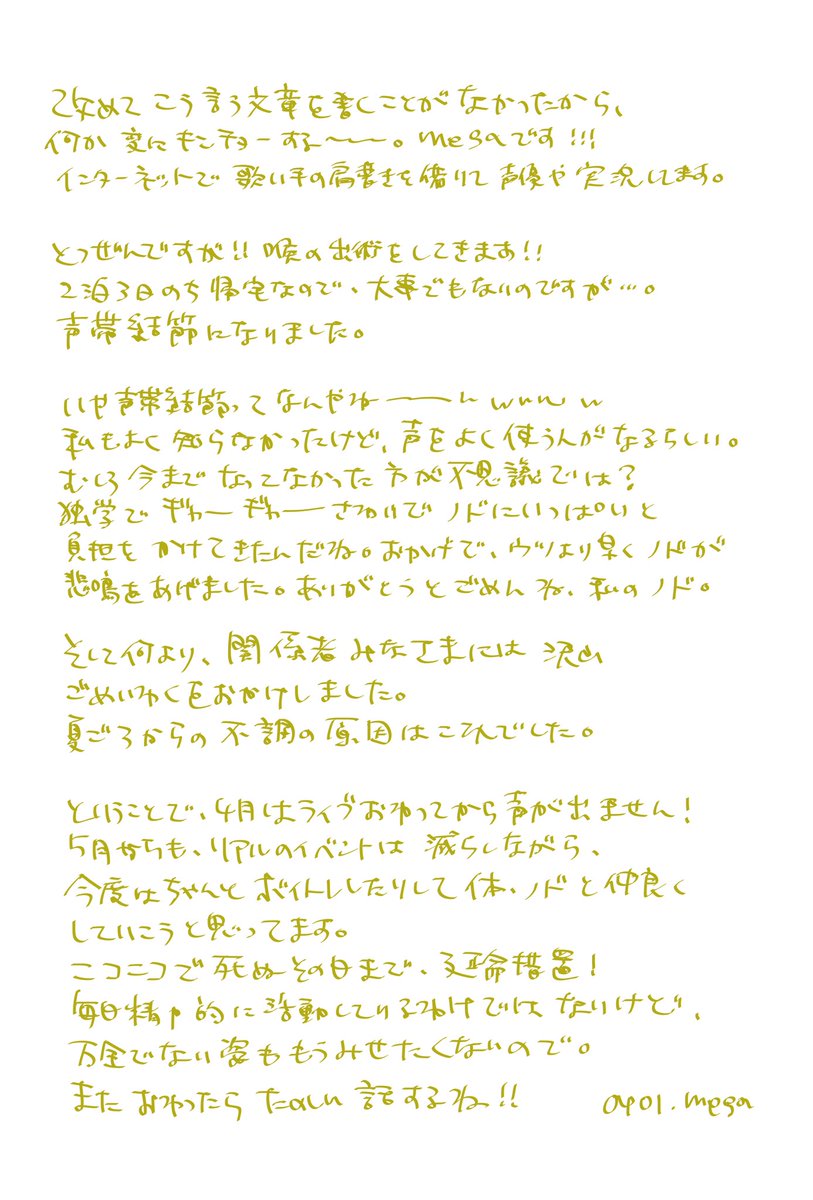 改めて こう言う文章を書くことがなかったから、
何か 変に キンチョーする〜〜。megaです!!!
インターネットで 歌い手の肩書きを借りて 声優や実況してます。
とつぜんですが!! 喉の出術をしてきまあ!!
2泊3日のち帰宅なので、大事でもないのですが…。
声帯結節になりました。
いや声帯結節ってなんやねーーーん wwww
私もよく知らなかったけど、声をよく使う人がなるらしい。
むしろ今までなってなかった方が不思議では?
独学で ギャーギャー さわいで ノドにいっぱいと
負担を かけてきたんだね。おかげで、ウツより早くノドが
悲鳴をあげました。ありがとうとごめんね、私のノド。
そして何より、関係者みなさまには 沢山
ごめいわくをおかけしました。
夏ごろからの不調の原因はこれでした。
ということで、4月はライブおわってから声が出ません!
5月からも、リアルのイベントは 減らしながら、
今度はちゃんと ボイトレしたりして 体・ノドと仲良く
していこうと思ってます。
ニコニコで死ぬその日まで、延命措置!
毎日精力的に活動しているわけではないけど、
万全でない姿ももうみせたくないので。
また おわったら たのしい 話するね!! 0401.mega